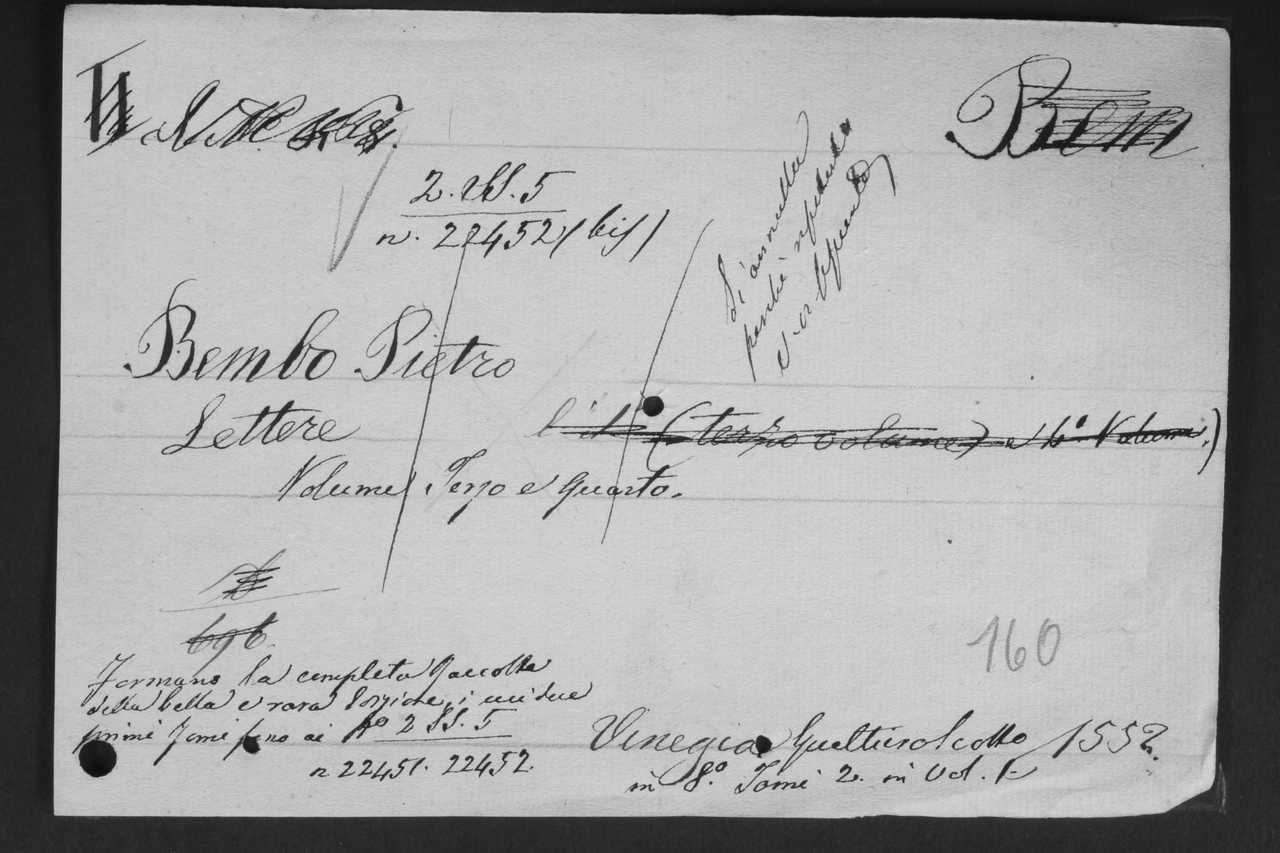 Bem
2. SS. 5
n. 22452 (bis)
Si annulla
perchè ripetuta
Bembo Pietro
Lettere
(terzo volume) e 4º Volume.)
Volume Terzo e Quarto.
696.
160
Formano la completa Raccolta
della bella e rara Edizione, i cui due
primi Tomi sono ai Nº 2 SS. 5
n 22451. 22452.
Vinegia Gualtero Scotto 1552.
in 8.º Tomi 2. in Vol. 1